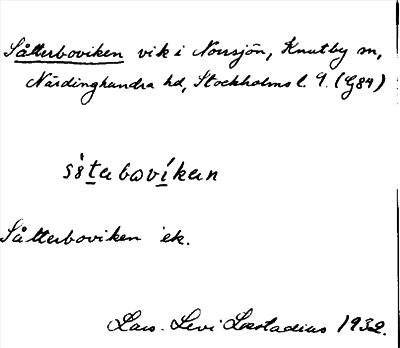 Såtterboviken vik i Norrsjön, Knutby sn,
Närdinghundra hd, Stockholms l. 9. (G84)
såtabovíkan
Såtterboviken ek.
Lars Levi Læstadius 1932.